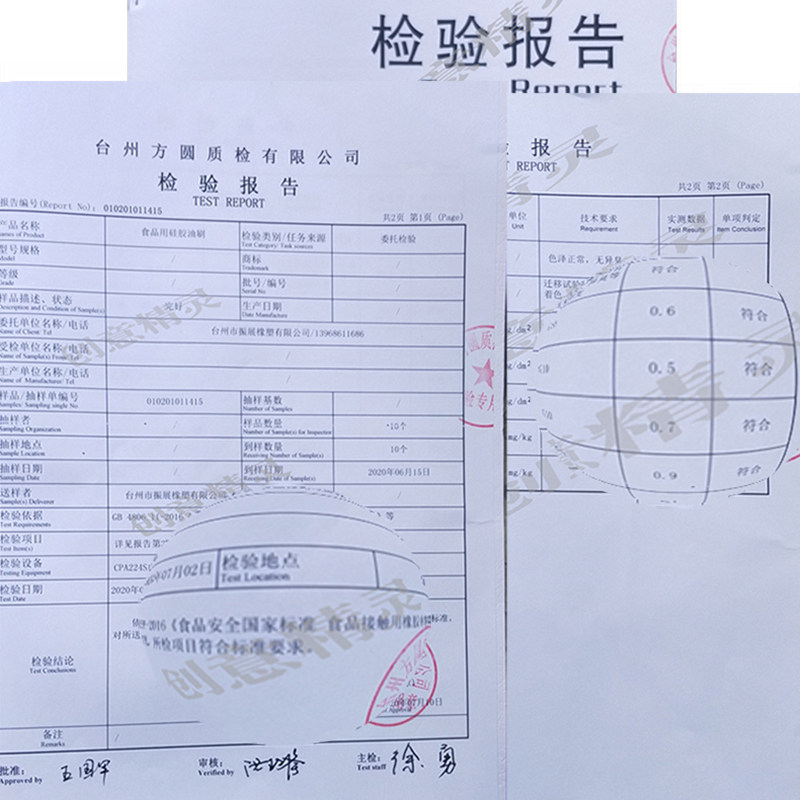 检验报告
Report
台州方圆质检有限公司
检验报告
TEST REPORT
报告编号(Report No): 010201011415
共2页 第1页 (Page)
产品名称 食品用硅胶油刷 检验类别/任务来源 委托检验
Names of Product Test Category/Task sources
型号规格 / 商标 /
Model Trademark
等级 / 批号/编号 /
Grade Serial No
样品描述、状态 完好 生产日期 /
Description and Condition of Sample(s) Date Manufacture
委托单位名称/电话 台州市振展橡塑有限公司/13968611686
Name of Client/Tel
受检单位名称/电话 /
Name of Sample(s) From/Tel
生产单位名称/电话 /
Name of Manufacturer/Tel
样品/抽样单编号 010201011415 抽样基数 /
Samples/Sampling single No Number of Samples
抽样者 / 样品数量 10个
Sampling Organization Number of Samples for Inspector
抽样地点 / 到样数量 10个
Sample Location Receiving Number of Sample(s)
抽样日期 / 到样日期 2020年06月15日
Sampling Date Receiving Date of Sample(s)
送样者 台州市振展橡塑有限公司 /
Sample(s) Deliverer
检验依据 GB 4806.11-2016 等
Test Requirements
检验项目 详见报告第二
Test Item(s)
检验设备 CPA224S
Testing Equipment
检验日期 2020年 07月02日 检验地点
Test Date Test Location
依 -2016《食品安全国家标准 食品接触用橡胶 标准,
对所送 所检项目符合标准要求。
检验结论
Test Conclusions
月10日
备注 /
Remarks
批准: 王国军 审核: 主检: 徐勇
Approved by Verified by Test staff
报告
T REPORT
共2页 第2页 (Page)
单位 技术要求 实测数据 单项判定
Unit Requirement Test Results Item Conclusion
/ 色泽正常,无异臭
迁移试验 符合
着色
g/dm² 0.6 符合
g/dm² 0.5 符合
g/dm² 0.7 符合
mg/kg
mg/kg 0.9 符合
创意精灵
创意精灵
创意精灵
创意精灵
创意精灵